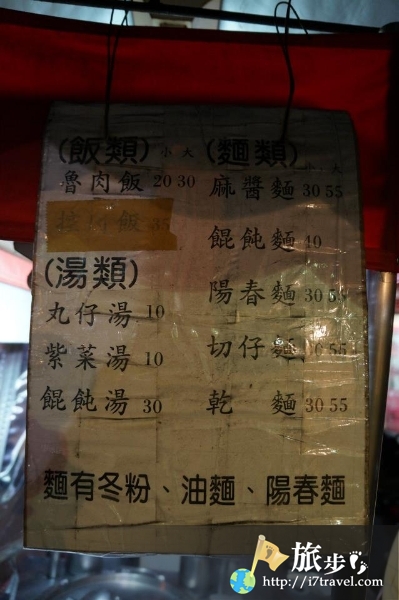 (飯類) 小 大
魯肉飯 20 30
飯 35
(湯類)
丸仔湯 10
紫菜湯 10
餛飩湯 30
(麵類) 小 大
麻醬麵 30 55
餛飩麵 40
陽春麵 30 55
切仔麵 30 55
乾 麵 30 55
麵有冬粉、油麵、陽春麵
旅步
http://i7travel.com